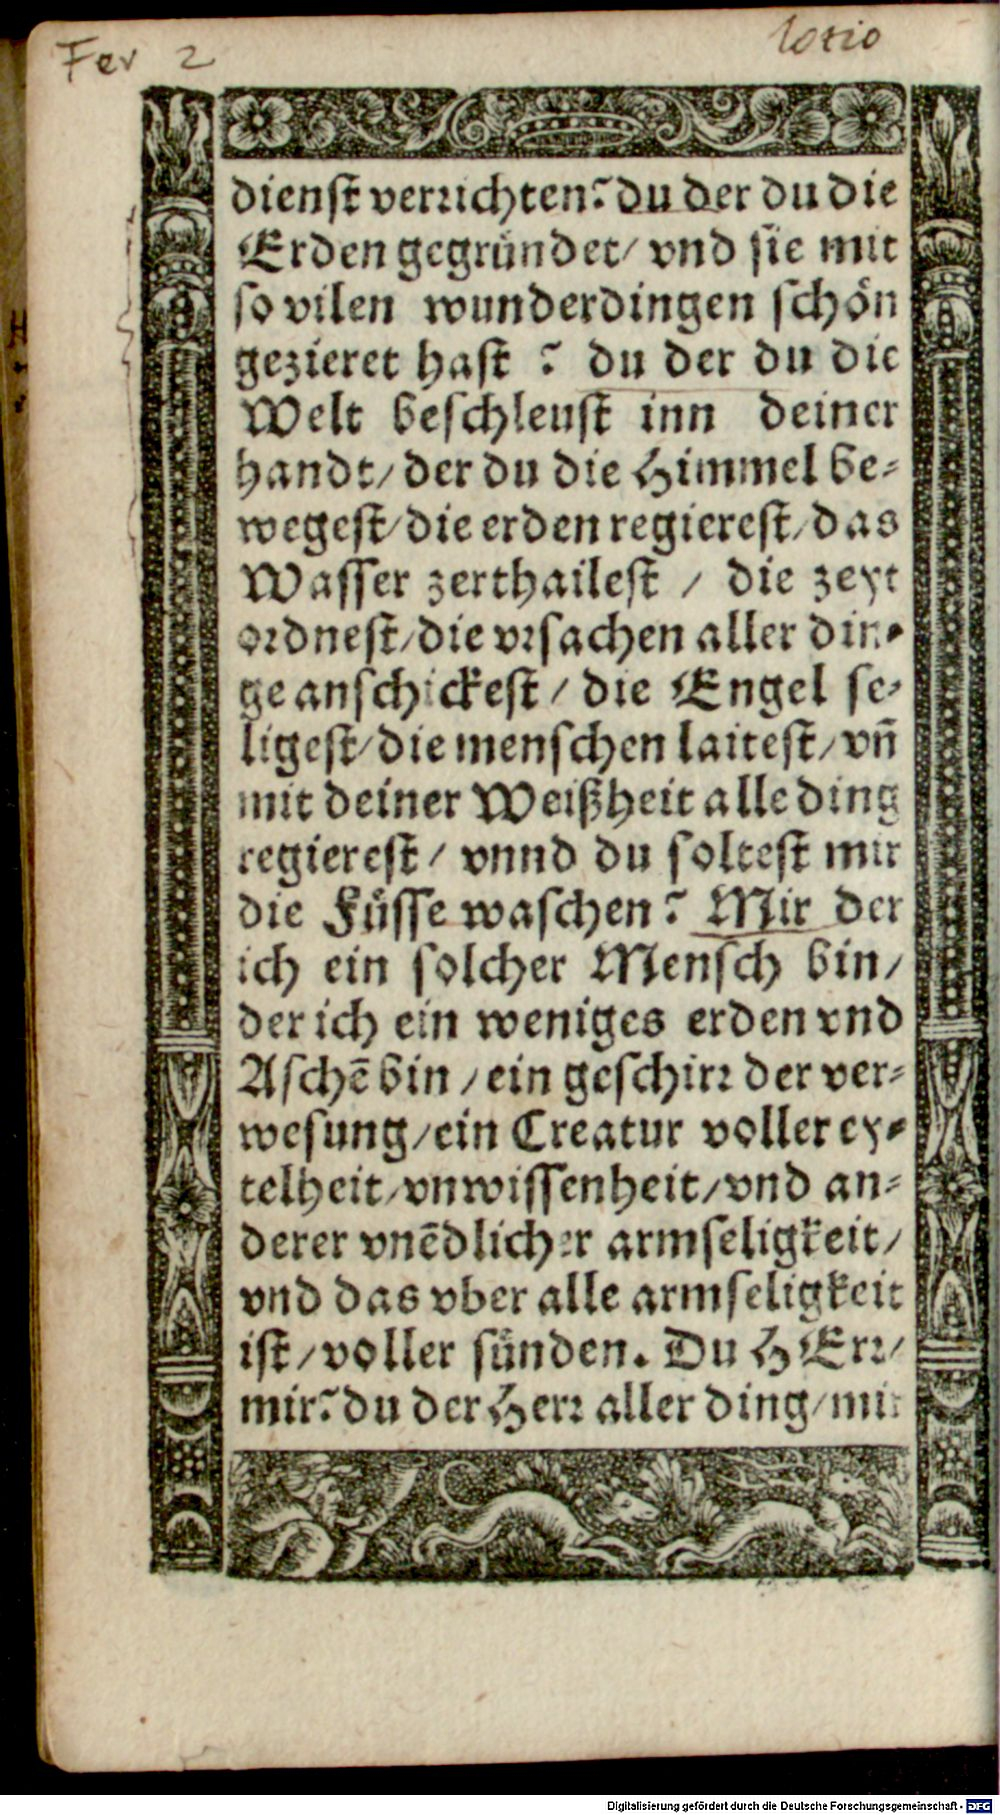 Fer 2
lotio
dienst verrichten? du der du die
Erden gegründet/ vnd sie mit
so vilen wunderdingen schön
gezieret hast ? du der du die
Welt beschleust inn deiner
handt/ der du die Himmel be-
wegest/ die erden regierest/ das
Wasser zerthailest / die zeyt
ordnest/ die vrsachen aller din-
ge anschickest / die Engel se-
ligest/ die menschen laitest/ vñ
mit deiner Weißheit alle ding
regierest / vnnd du soltest mir
die Füsse waschen? Mir der
ich ein solcher Mensch bin/
der ich ein weniges erden vnd
Aschē bin / ein geschirr der ver-
wesung/ ein Creatur voller ey-
telheit/ vnwissenheit/ vnd an-
derer vnēdlicher armseligkeit/
vnd das vber alle armseligkeit
ist / voller sünden. Du HErr/
mir? du der Herr aller ding/ mir
Digitalisierung gefördert durch die Deutsche Forschungsgemeinschaft - DFG